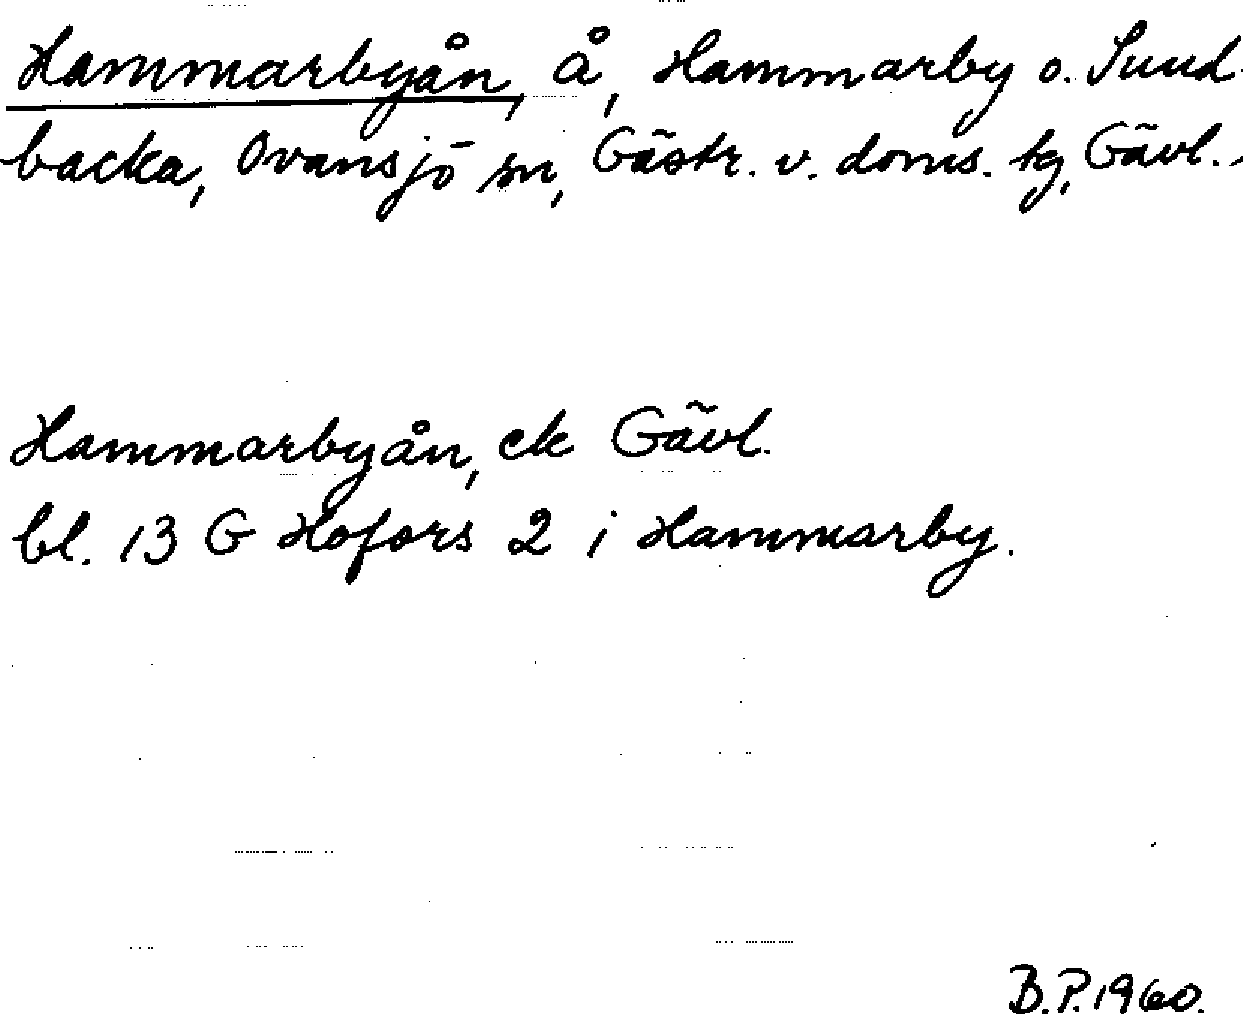 Hammarbyån, å, Hammarby o. Sund-
backa, Ovansjö sn, Gästr. v. doms. tg, Gävl.
Hammarbyån, ek Gävl.
bl. 13 G Hofors 2 i Hammarby.
B.P. 1960.